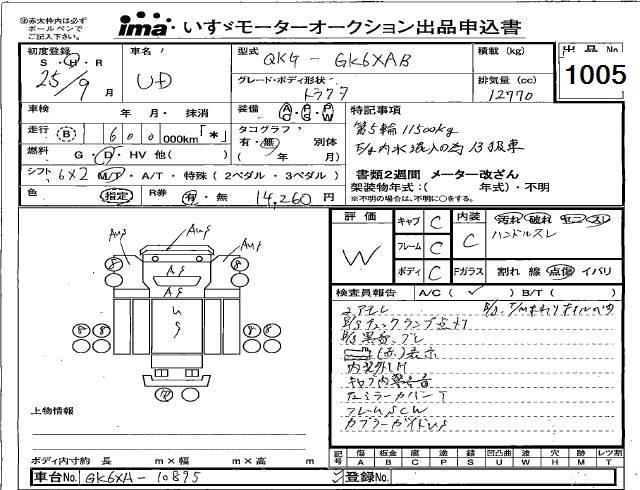 ※赤太枠内は必ず
ボールペンで
ご記入下さい。
ima いすゞモーターオークション出品申込書
初度登録 S・H・R 25/9月
車名 UD
型式 QKG - GK6XAB
積載 (kg)
出品No. 1005
グレード・ボディ形状 トラクタ
排気量 (cc) 12770
車検 年 月・ 抹消
装備 AC PS PW
特記事項
走行 (B) 600 000km「*」
タコグラフ 有・無 別体 ( 年 月)
第5輪 11500kg
燃料 G・D・HV 他( )
E/g内水混入の為 B扱車
シフト 6X2 M/T・A/T・特殊 (2ペダル・3ペダル)
書類2週間 メーター改ざん
色 指定 R券 有・無 14,260円
架装物年式:( 年式)・不明
※不明の場合は、不明に○をする。
評価 W
キャブ C
フレーム C
ボディ C
内装 C
汚れ 破れ ヤニ スレ
ハンドルスレ
Fガラス 割れ 線 点傷 イバリ
検査員報告 A/C ( ✓ ) B/T ( )
E/gチェックランプ点灯
内装外し有
キャブ内警告音
左ミラーカバーT
フレームSCW
カプラーガイドUS
上物情報
ボディ内寸約 長 m×幅 m×高 m
記号 傷 A 板金 B 腐 C 塗 P 錆 S 凹凸曲 U 波 W 穴 H 跡 M レツ割 T
車台No. GK6XA - 10895
登録No.